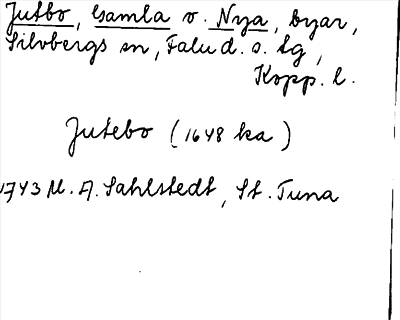 Jutbo, Gamla o. Nya, Dyar,
Silvbergs sn, Falu d. s. tg,
Kopp. l.
Jutebo (1648 ka)
1743 M. A. Sahlstedt, St. Tuna